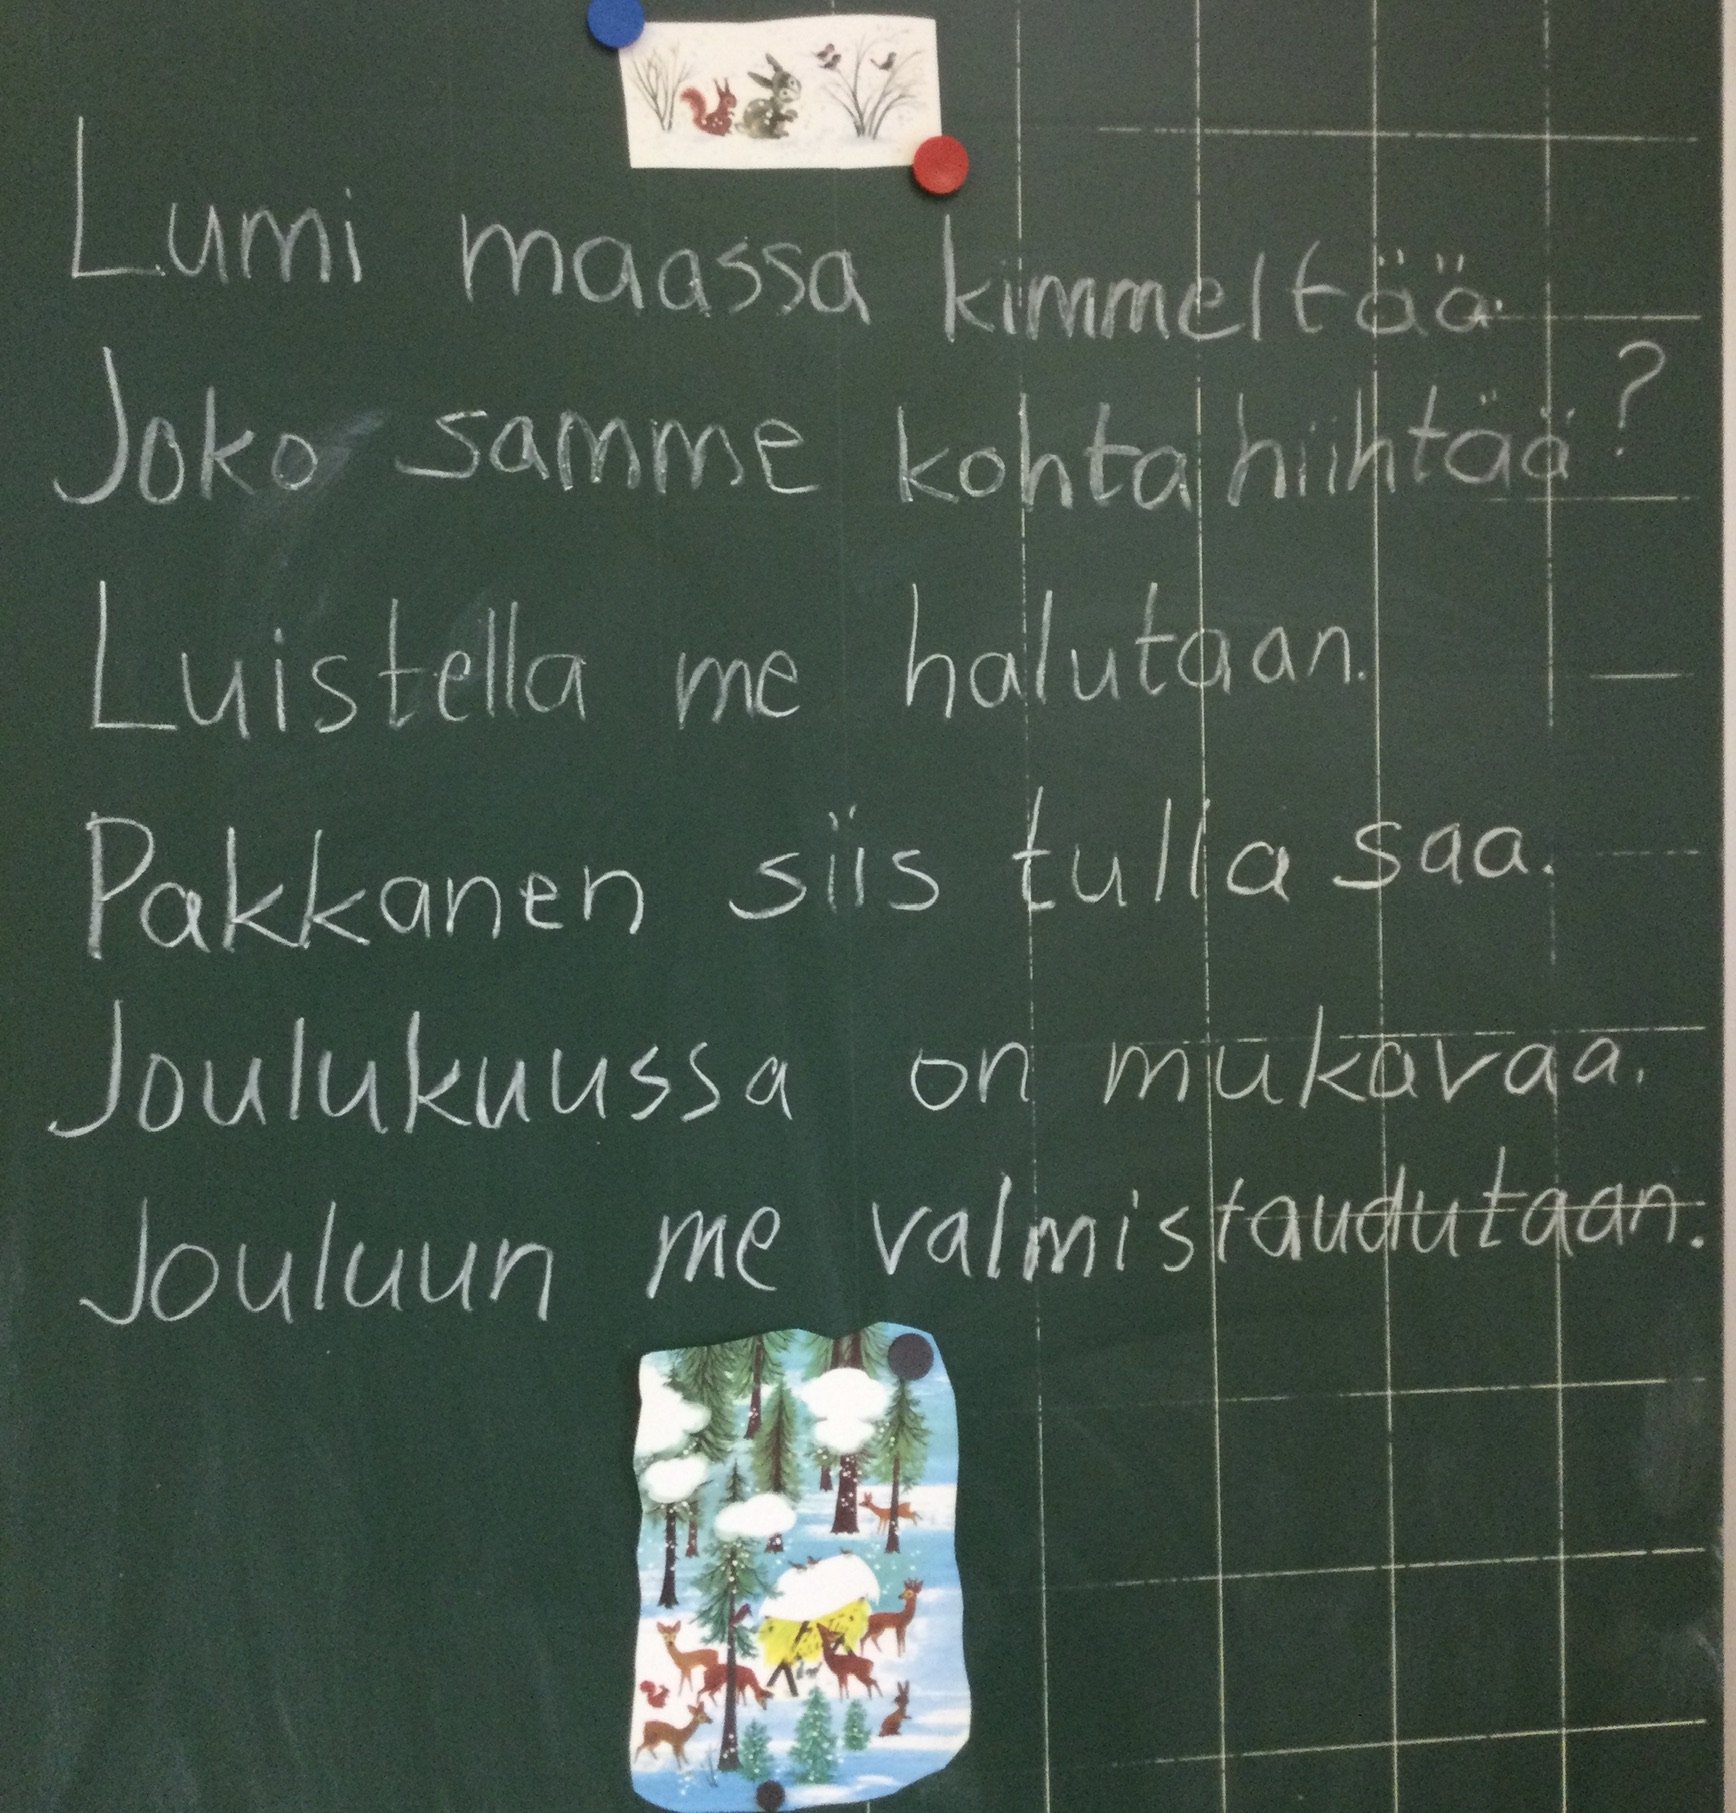 Lumi maassa kimmeltää.
Joko samme kohta hiihtää?
Luistella me halutaan.
Pakkanen siis tulla saa.
Joulukuussa on mukavaa.
Jouluun me valmistaudutaan.